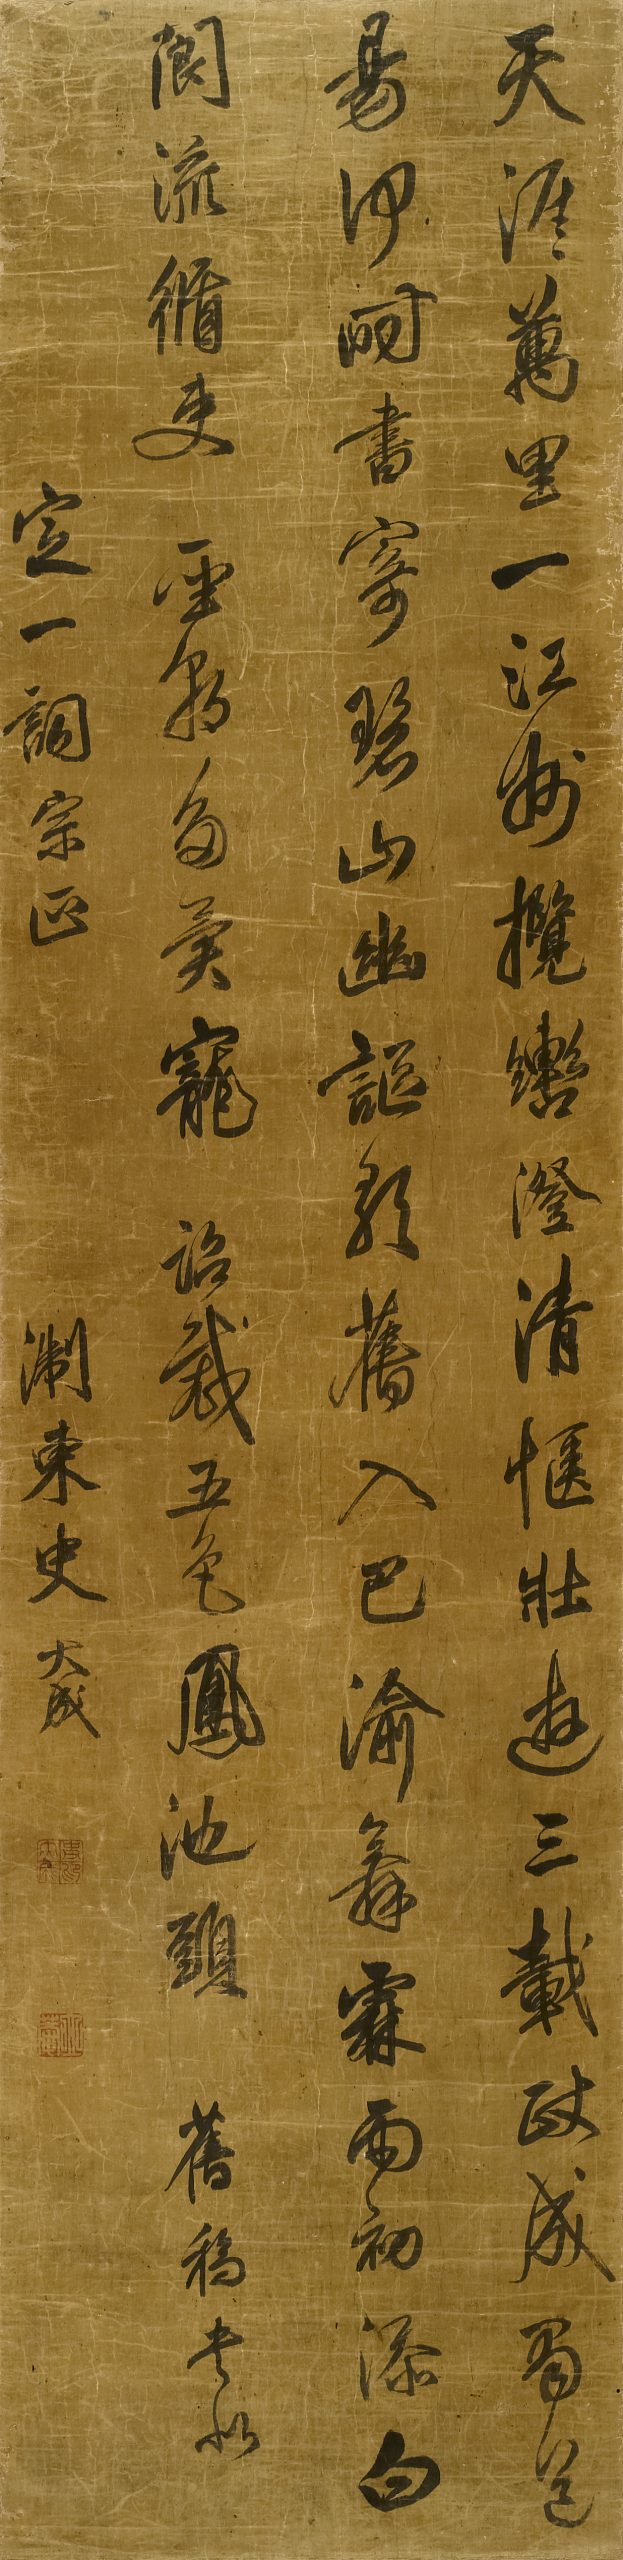 天涯萬里一江州攬轡澄清愜壯遊三載政成蜀道
易何時書寄碧山幽謳歌舊入巴渝舞霖雨初添白
閬流循吏 聖朝多異寵 詔裁五色鳳池頭 舊稿書似
定一詞宗正 淛東史大成